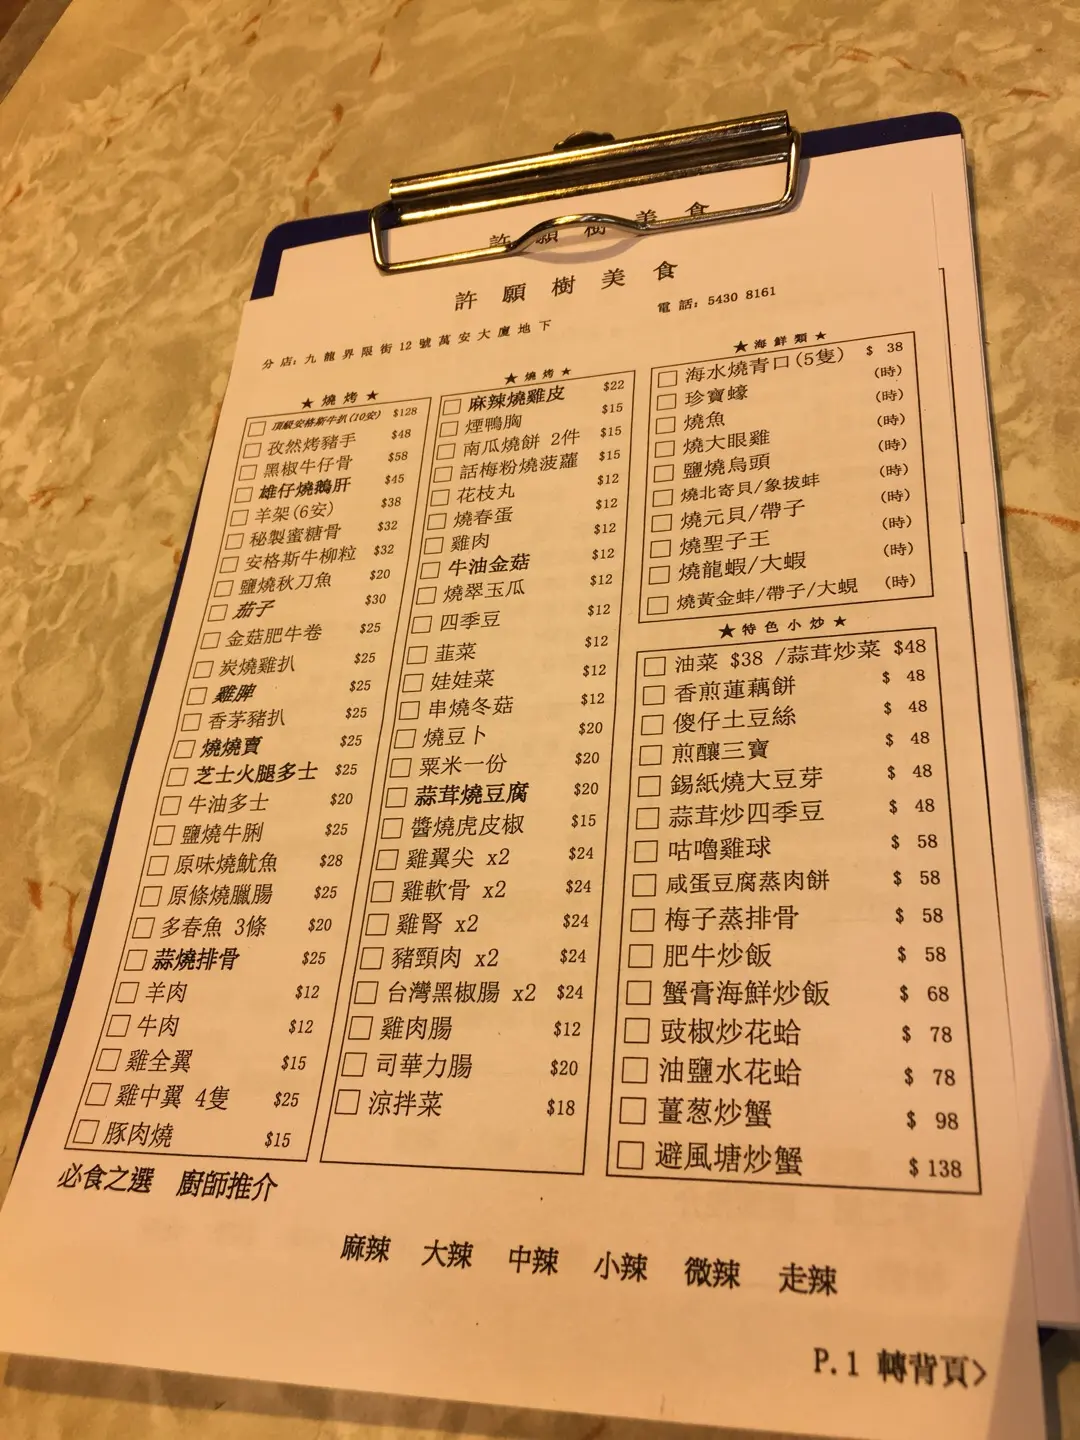 許願樹美食
許願樹美食
電話: 5430 8161
分店: 九龍界限街12號萬安大廈地下
★燒烤★
頂級安格斯牛扒(10安) $128
孜然烤豬手 $48
黑椒牛仔骨 $58
雄仔燒鵝肝 $45
羊架(6安) $38
秘製蜜糖骨 $32
安格斯牛柳粒 $32
鹽燒秋刀魚 $20
茄子 $30
金菇肥牛卷 $25
炭燒雞扒 $25
雞脾 $25
香茅豬扒 $25
燒燒賣 $25
芝士火腿多士 $25
牛油多士 $20
鹽燒牛脷 $25
原味燒魷魚 $28
原條燒臘腸 $25
多春魚 3條 $20
蒜燒排骨 $25
羊肉 $12
牛肉 $12
雞全翼 $15
雞中翼 4隻 $25
豚肉燒 $15
★燒烤★
麻辣燒雞皮 $22
煙鴨胸 $15
南瓜燒餅 2件 $15
話梅粉燒菠蘿 $15
花枝丸 $12
燒春蛋 $12
雞肉 $12
牛油金菇 $12
燒翠玉瓜 $12
四季豆 $12
韮菜 $12
娃娃菜 $12
串燒冬菇 $12
燒豆卜 $20
粟米一份 $20
蒜茸燒豆腐 $20
醬燒虎皮椒 $15
雞翼尖 x2 $24
雞軟骨 x2 $24
雞腎 x2 $24
豬頸肉 x2 $24
台灣黑椒腸 x2 $24
雞肉腸 $12
司華力腸 $20
涼拌菜 $18
★海鮮類★
海水燒青口(5隻) $ 38
珍寶蠔 (時)
燒魚 (時)
燒大眼雞 (時)
鹽燒烏頭 (時)
燒北寄貝/象拔蚌 (時)
燒元貝/帶子 (時)
燒聖子王 (時)
燒龍蝦/大蝦 (時)
燒黃金蚌/帶子/大蜆 (時)
★特色小炒★
油菜 $38 /蒜茸炒菜 $48
香煎蓮藕餅 $ 48
傻仔土豆絲 $ 48
煎釀三寶 $ 48
錫紙燒大豆芽 $ 48
蒜茸炒四季豆 $ 48
咕嚕雞球 $ 58
咸蛋豆腐蒸肉餅 $ 58
梅子蒸排骨 $ 58
肥牛炒飯 $ 58
蟹膏海鮮炒飯 $ 68
豉椒炒花蛤 $ 78
油鹽水花蛤 $ 78
薑葱炒蟹 $ 98
避風塘炒蟹 $ 138
必食之選 廚師推介
麻辣 大辣 中辣 小辣 微辣 走辣
P.1 轉背頁>